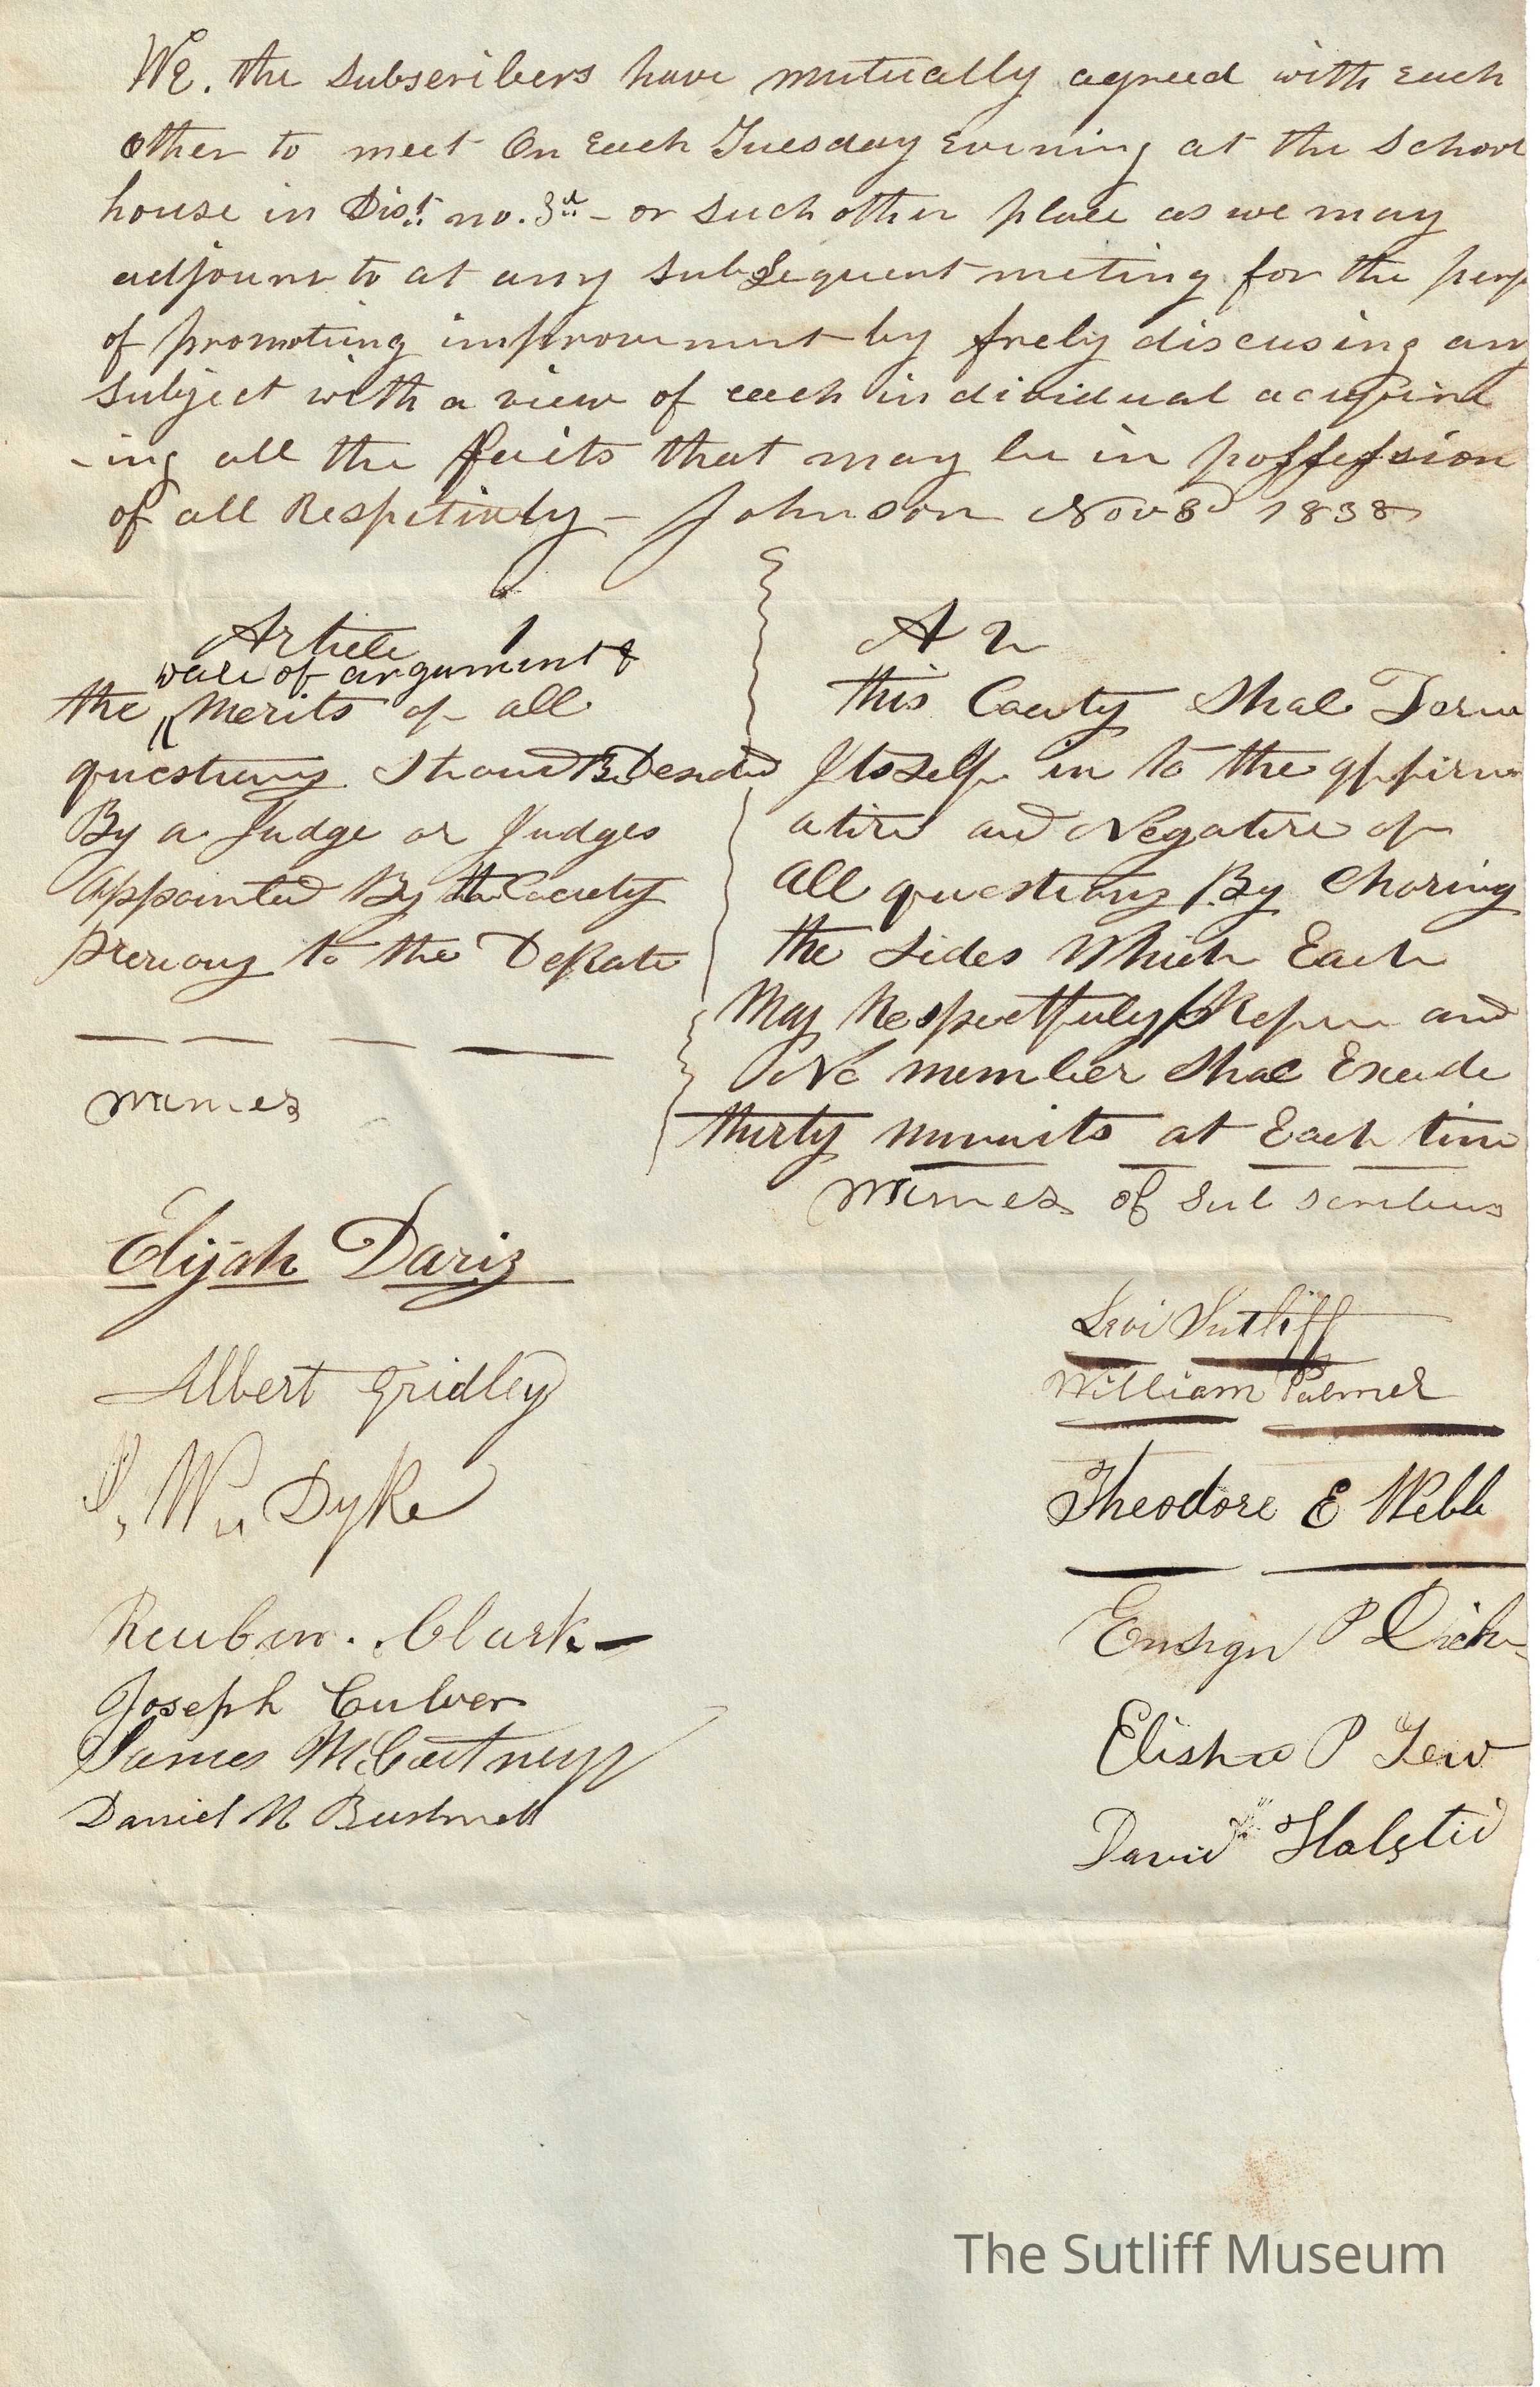 We. the Subscribers have mutually agreed with Each
other to meet On Each Tuesday Evening at the School
house in Dist. no. 3d - or such other place as we may
adjourn to at any subsequent meting for the purp
of promoting improvement by frely discusing any
subject with a view of each individual acquire
-ing all the facts that may be in possession
of all Respetively - Johnson Nov 8d 1838
Article 1
wait of argument &
the Merits of all
questions Shaud Be Desided
By a Judge or Judges
Appointed By the Caciety
Previous to the Debate
names
A 2
this Caciety Shal Form
Itself in to the affirm
ative and Negative of
All questions By Chosing
the sides Which Each
May Respectfuly and
No member Shal Excede
thirty minuits at Each time
names of Subscribers
Elijah Davis
Albert Gridley
Wm Dyke
Reuben. Clark
Joseph Culver
James McCartney
Daniel N Bushnell
Levi Sutliff
William Palmer
Theodore E Webb
Ensign P Dick
Elisha P Tew
David Halstid
The Sutliff Museum